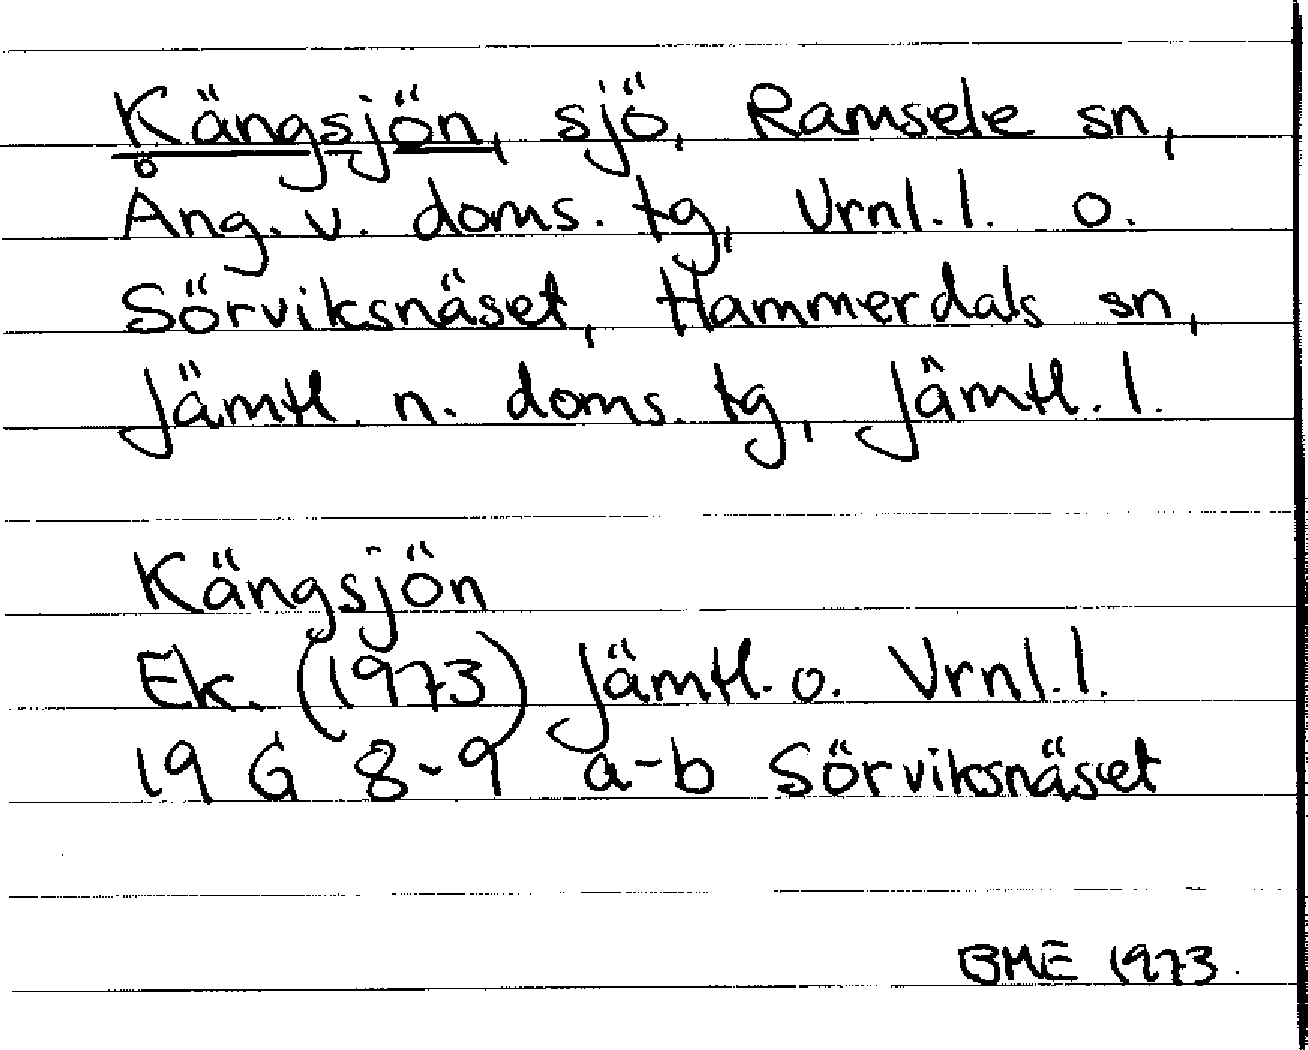 Kängsjön, sjö, Ramsele sn,
Ång. v. doms. tg, Vrnl. l. o.
Sörviksnäset, Hammerdals sn,
Jämtl. n. doms. tg, Jämtl. l.
Kängsjön
Ek. (1973) Jämtl. o. Vrnl. l.
19 G 8-9 a-b Sörviksnäset
BME 1973.